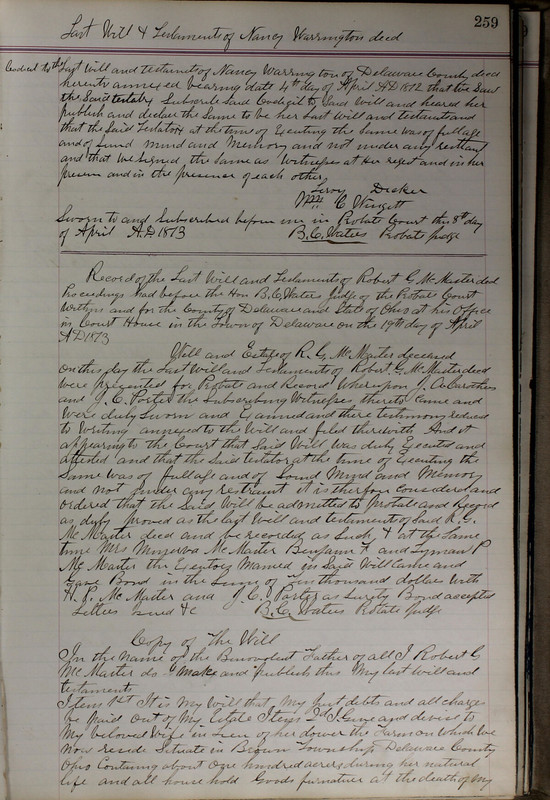 259
Last Will & Testament of Nancy Warrington decd
Codicil to the Last will and testamet of Nancy Warrington of Delaware County decd
hereunto annexed bearing date 4th day of April AD 1872 that we saw
the Said testator Subscribe Said Codicil to Said Will and heard her
publish and declare the Same to be her Last Will and testament and
that the Said testator at the time of Executing the Same was of full age
and of Sound mind and Memory and not under any restraint
and that we Signed the Same as Witnesses at Her request and in her
presence and in the presence of each other
Leroy Decker
Wm C Wingett
Sworn to and Subscribed before me in Probate Court this 8th day
of April AD 1873 B. C. Waters Probate Judge
Record of the Last Will and Testament of Robert G McMaster decd
Proceedings had before the Hon B. C. Waters Judge of the Probate Court
Within and for the County of Delaware and State of Ohio at his Office
in Court House in the Town of Delaware on the 19th day of April
AD 1873
Will and Estate of R. G. McMaster deceased
On this day the Last Will and Testament of Robert G McMaster decd
were presented for Probate and Record Whereupon J. A. Carothers
and J. C. Porter the Subscribing Witnesses thereto Came and
Were duly Sworn and Examined and there testimony reduced
to Writing annexed to the Will and filed therewith And it
appearing to the Court that Said Will was duly Executed and
attested and that the Said testator at the time of Executing the
Same was of full age and of Sound Mind and Memory
and not under any restraint it is therefore Considered and
ordered that the Said Will be admitted to Probate and Record
as duly proved as the last Will and testament of Said R. G.
McMaster decd and be recorded as Such & at the Same
time Mrs Minerva McMaster Benjamin F and Lyman P
McMaster the Executors Named in Said Will Came and
Gave Bond in the Sum of Ten thousand dollars With
H. P. McMaster and J. C. Porter as Surety Bond accepted
Letters issued &c B. C. Waters Probate Judge
Copy of The Will
In the Name of the Benevolent Father of all I Robert G
McMaster do make and publish this My last Will and
testament
Item 1st It is My Will that My just debts and all charges
be paid out of My Estate Item 2d I Give and devise to
My beloved Wife in Lieu of her dower the Farm on Which We
Now reside Situate in Brown Township Delaware County
Ohio Containing about One hundred acres during her natural
life and all household Goods furniture at the death of my